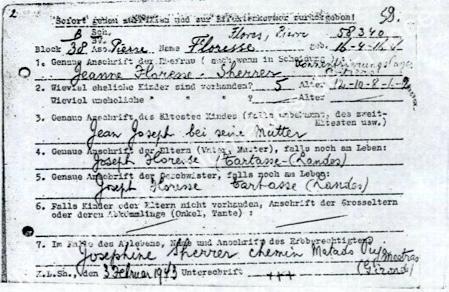 2.
59.
Sofort geben und zur zurückgeben!
B Flores, Pierre 58340
Block 38 Pierre Name Floresse geb. 16-4-
1. Genaue Anschrift der Ehefrau (auch wenn in Scheidung
Jeanne Floresse - Sherrer
2. Wieviel eheliche Kinder sind vorhanden? 5 Alter 12-10-8-
Wieviel uneheliche " " " Alter
3. Genaue Anschrift des ältesten Kindes (falls unbekannt, des zweit-
ältesten usw.)
Jean Joseph bei seine Mutter
4. Genaue Anschrift der Eltern (Vater, Mutter), falls noch am Leben:
Joseph Floresse (Tartasse-(Landes)
5. Genaue Anschrift der Geschwister, falls noch am Leben:
Joseph Floresse Tartasse (Landes)
6. Falls Kinder oder Eltern nicht vorhanden, Anschrift der Grosseltern
oder deren Abkömmlinge (Onkel, Tante) :
7. Im Falle des Ablebens, Name und Anschrift des Erbberechtigten
Josephine Sherrer chemin Matado Mestras
(Gironde)
K.L.Sh., den 3 Februar 1943 Unterschrift +++